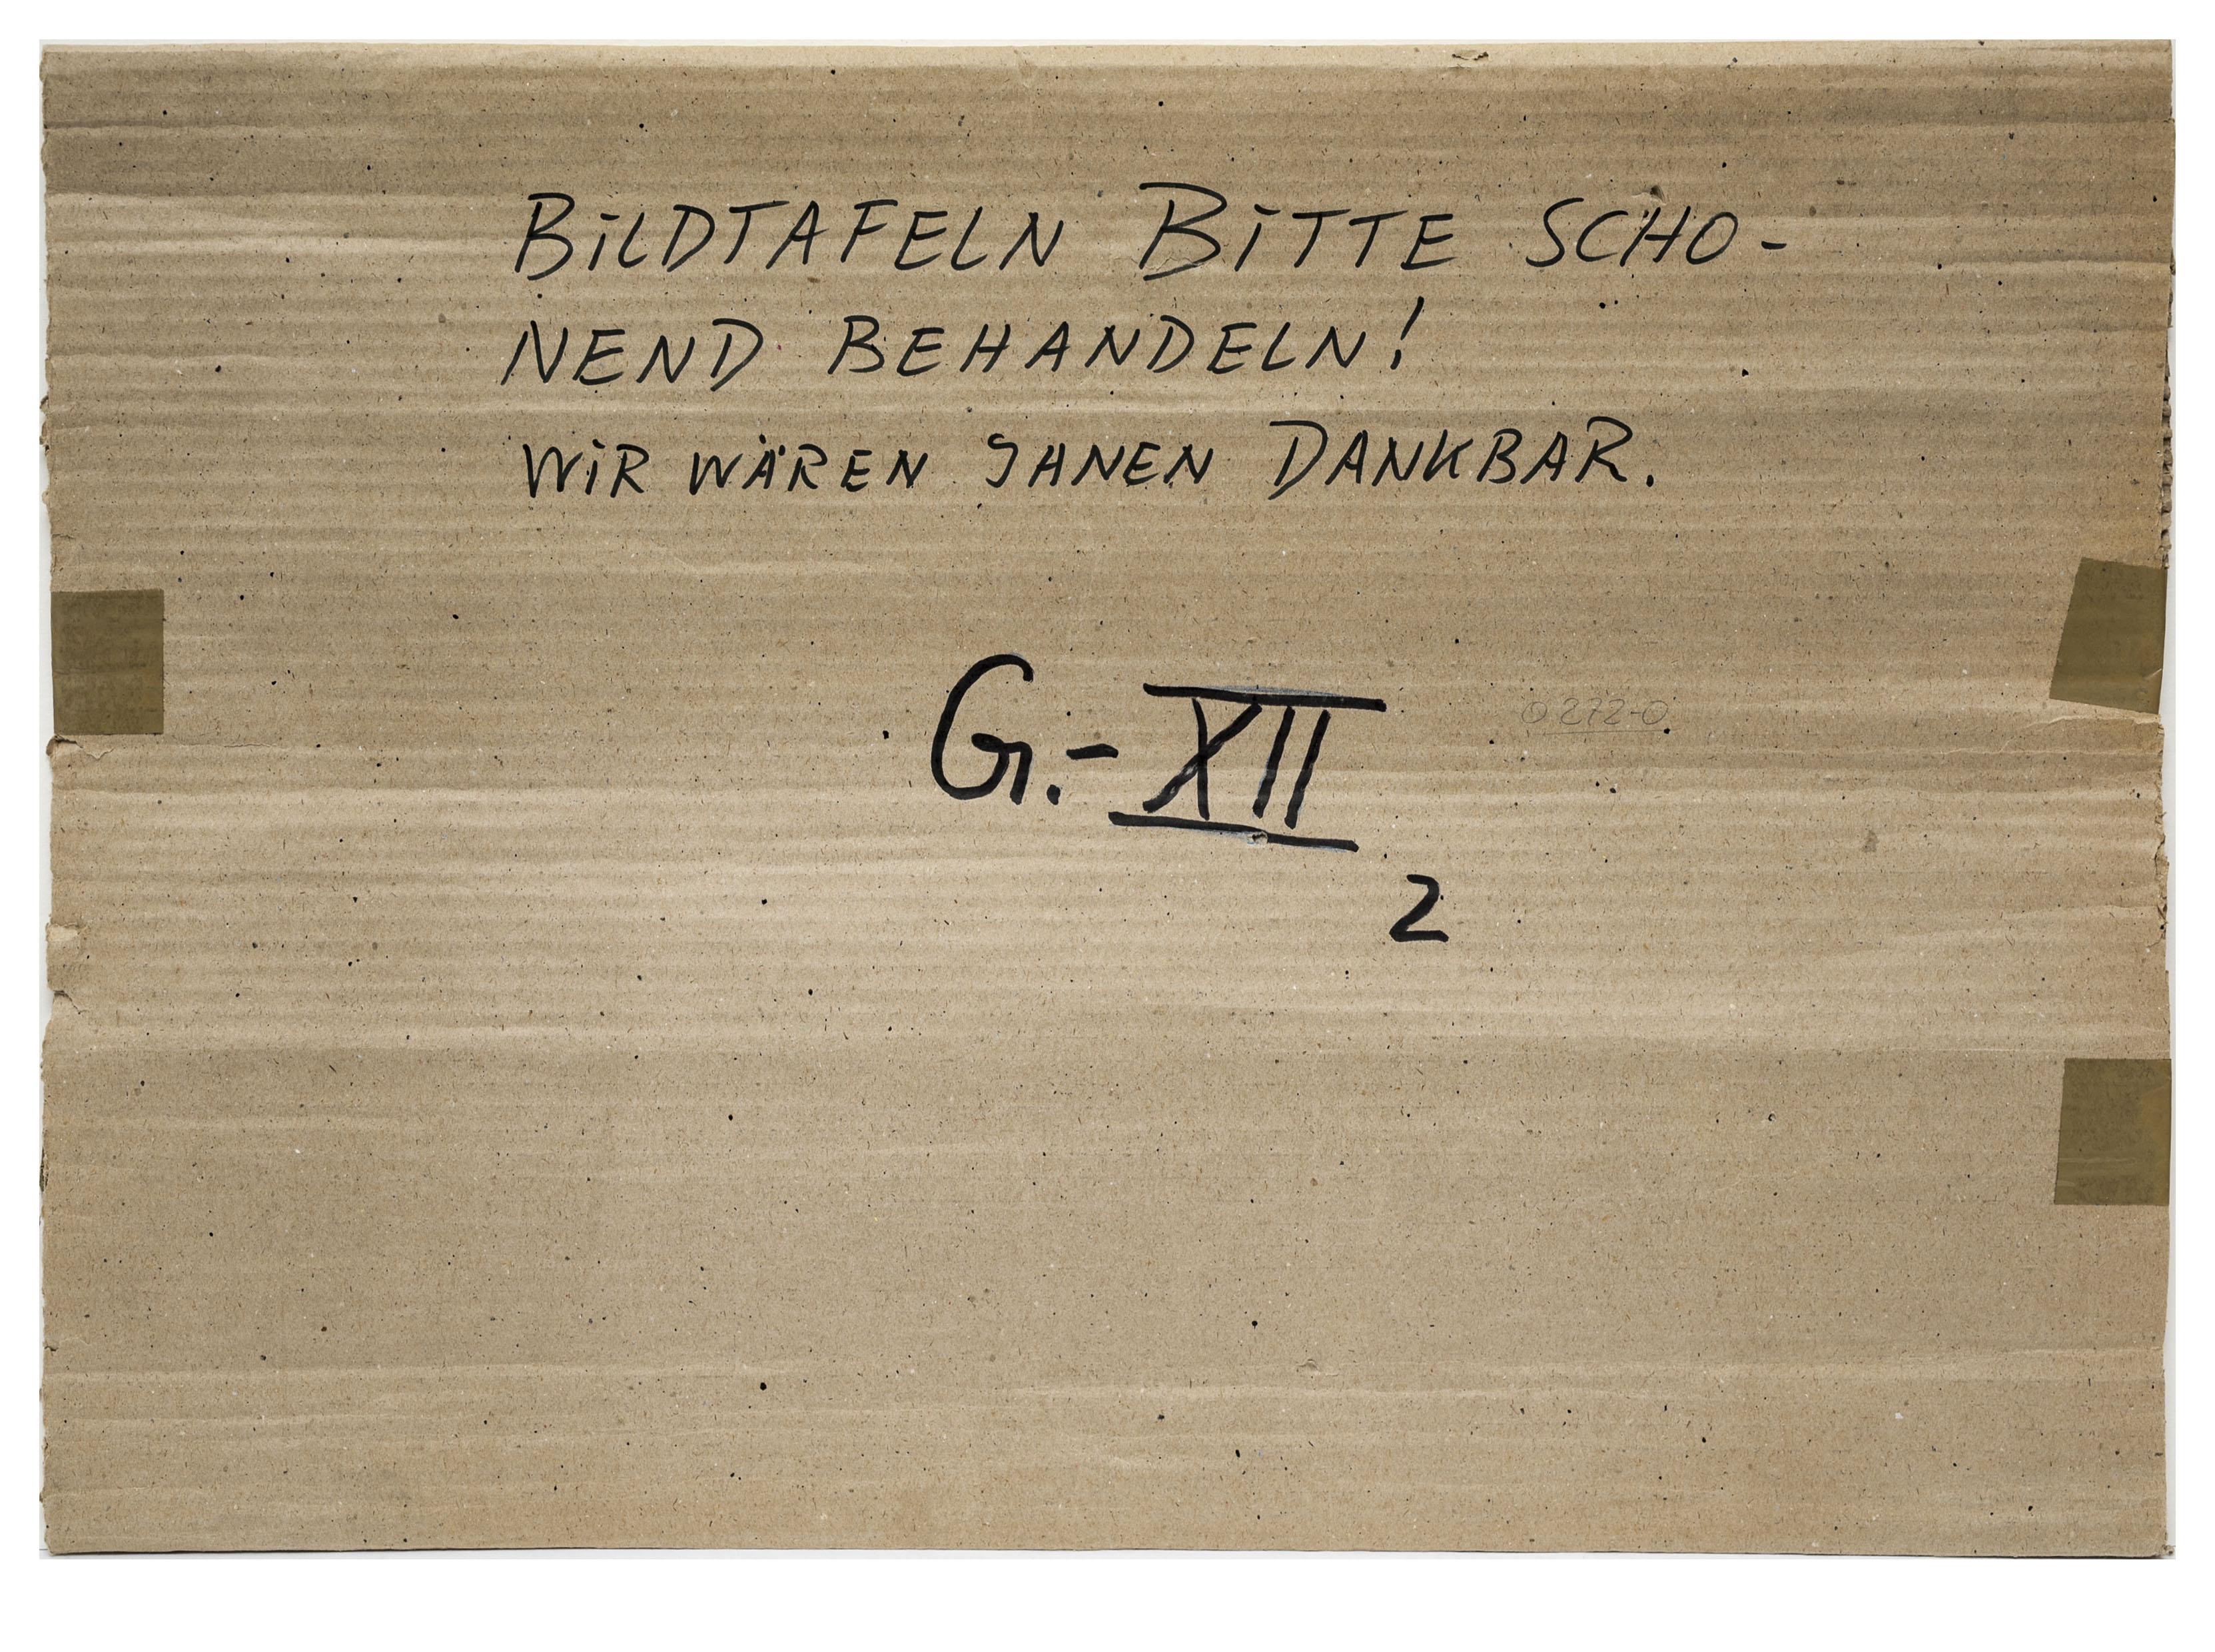 BILDTAFELN BITTE SCHO-
NEND BEHANDELN!
WIR WÄREN IHNEN DANKBAR.
G.-XII
0272-0
2